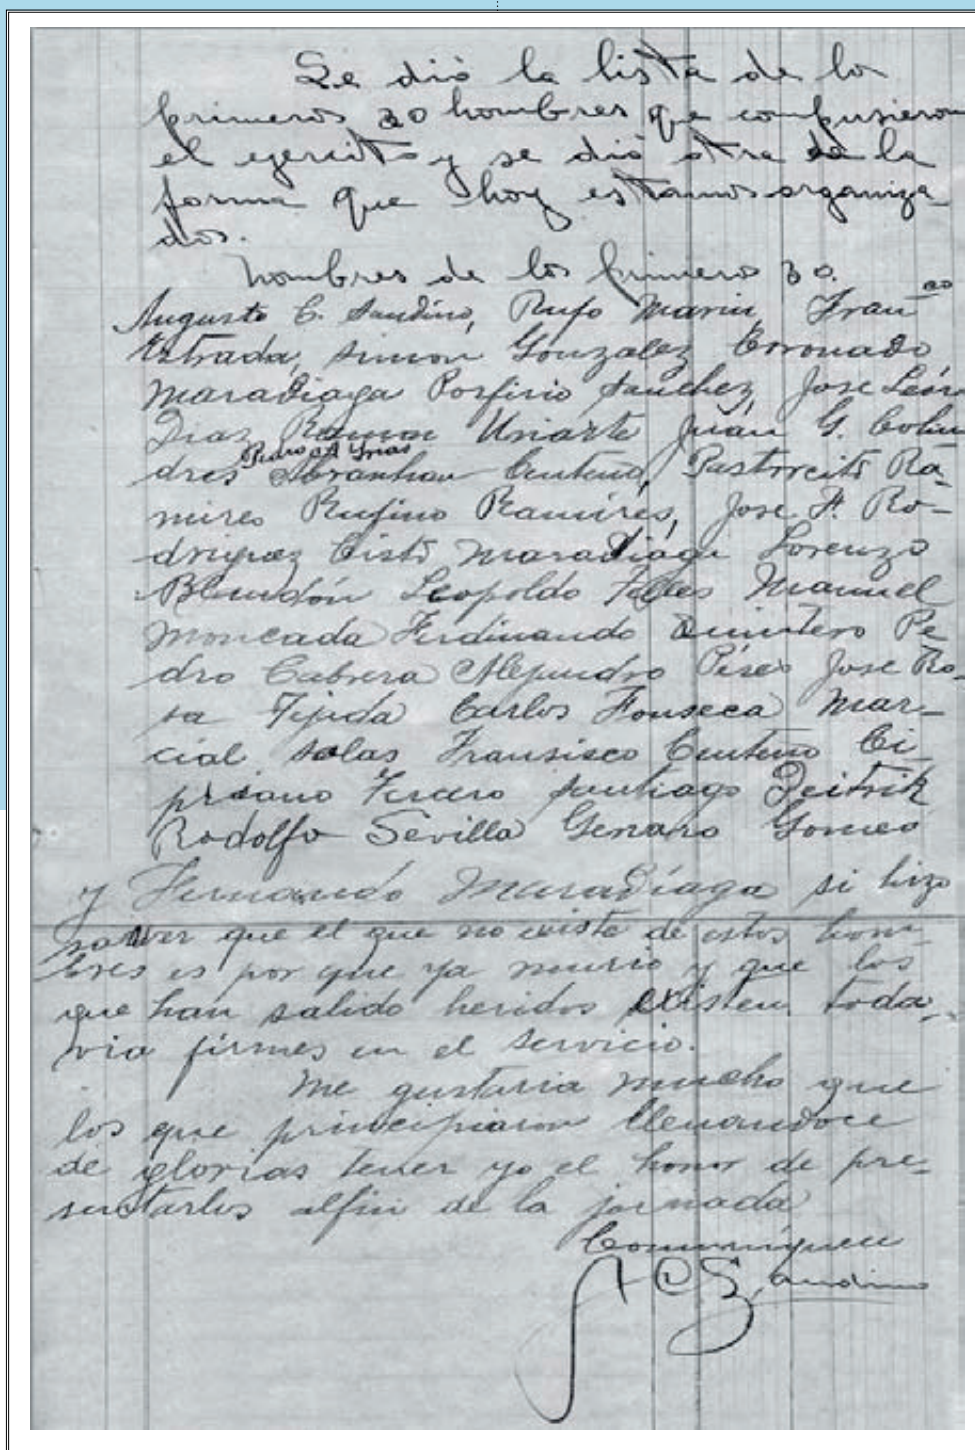 Se dió la lista de los
primeros 30 hombres que compusieron
el ejercito y se dió otra de la
forma que hoy estamos organiza
dos.
Nombres de los primero 30.
Augusto C. Sandino, Rufo Marin, Fran co
Estrada, Simon Gonzalez Coronado
Maradiaga Porfirio Sanchez, Jose León
Diaz Ramon Uriarte Juán G. Colin
dres Abranhan Centeno, Pastorcito Ra-
mires Rufino Ramíres, Jose F. Ro-
driguez Cisto Maradiága Lorenzo
Blandón Leopoldo Telles Manuel
Moncada Ferdinando Quintero Pe
dro Cabrera Alejandro Péres Jose Ro-
sa Tijida Carlos Fonseca Mar-
cial Salas Fransisco Centeno Ci
priano Tercero Santiago Deitrik
Rodolfo Sevilla Genaro Gomes
y Fernando Maradíaga si hizo
saver que el que no existe de estos hom-
bres es por que ya murio y que los
que han salido heridos existen toda-
via firmes en el servicio.
Me gustaria mucho que
los que principiaron llenandoce
de glorias tener yo el honor de pre-
sentarlos alfin de la jornada
Comuníquen
A C Sandino